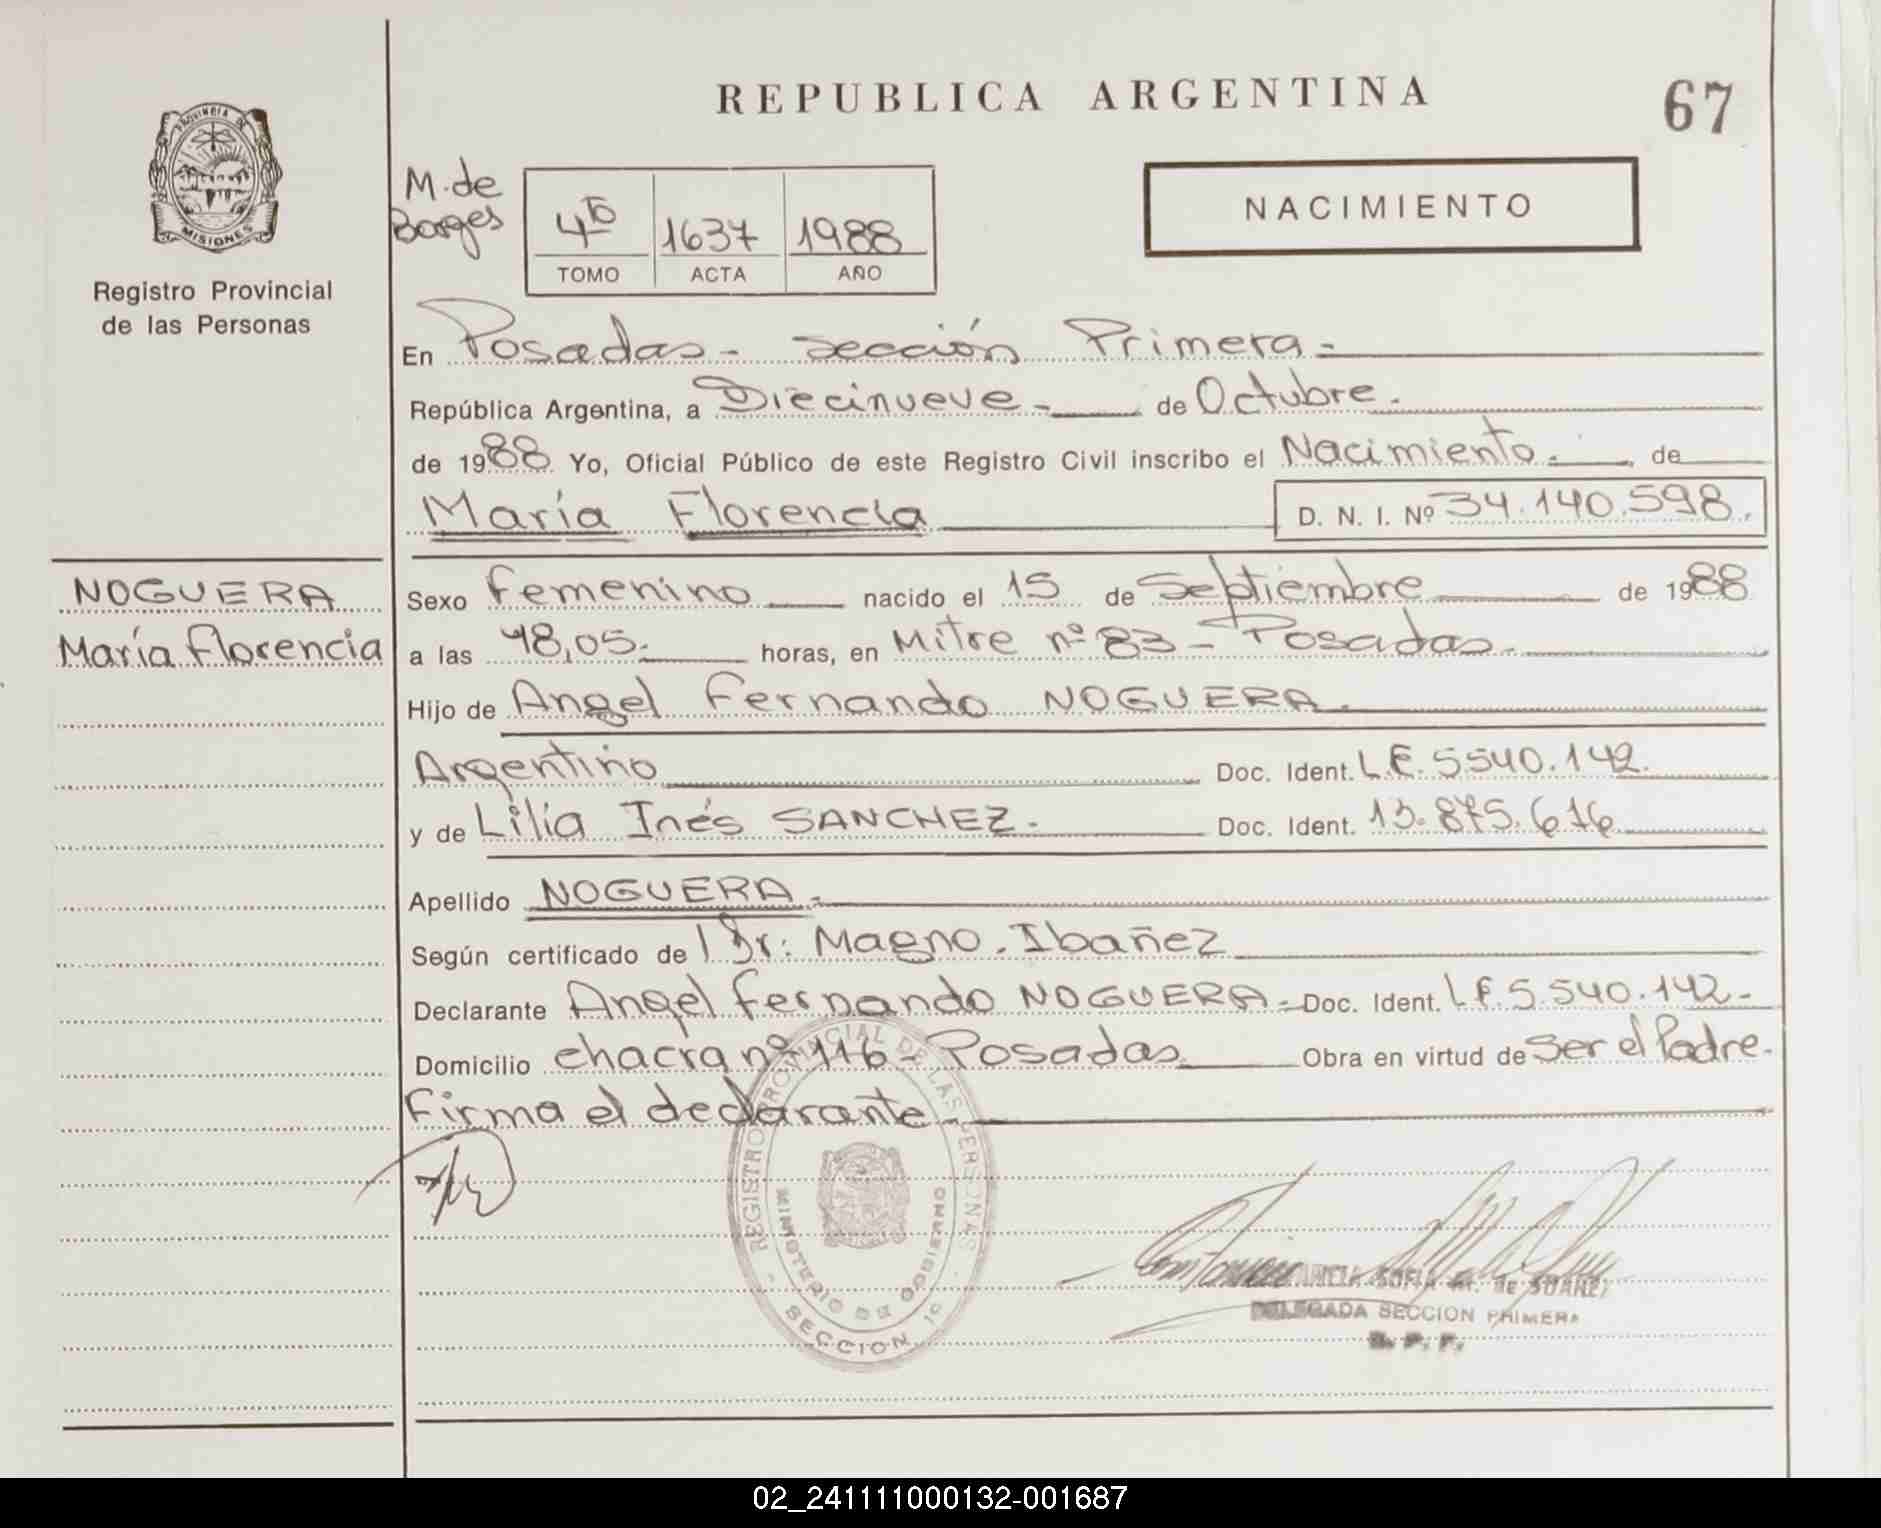 REPUBLICA ARGENTINA
67
PROVINCIA DE
MISIONES
Registro Provincial
de las Personas
M. de
Borges
4to 1637 1988
TOMO ACTA AÑO
NACIMIENTO
En Posadas - sección Primera -
República Argentina, a Diecinueve - de Octubre.
de 1988 Yo, Oficial Público de este Registro Civil inscribo el Nacimiento. de
María Florencia D. N. I. Nº 34.140.598.
NOGUERA
María Florencia
Sexo femenino nacido el 15 de Septiembre de 1988
a las 18,05. horas, en Mitre nº 83 - Posadas.
Hijo de Angel Fernando NOGUERA.
Argentino Doc. Ident. L.E. 5540.142.
y de Lilia Inés SANCHEZ. Doc. Ident. 13.875.676
Apellido NOGUERA.
Según certificado de Dr. Magno. Ibañez
Declarante Angel fernando NOGUERA - Doc. Ident. L.E. 5.540.142-
Domicilio chacra nº 116 - Posadas Obra en virtud de ser el Padre.
Firma el declarante -
REGISTRO PROVINCIAL DE LAS PERSONAS
MINISTERIO DE GOBIERNO
SECCION 1º
SOFIA M. de SUAREZ
DELEGADA SECCION PRIMERA
R. P. P.
02_241111000132-001687